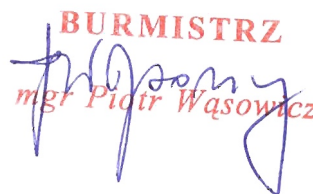 BURMISTRZ
mgr Piotr Wąsowicz